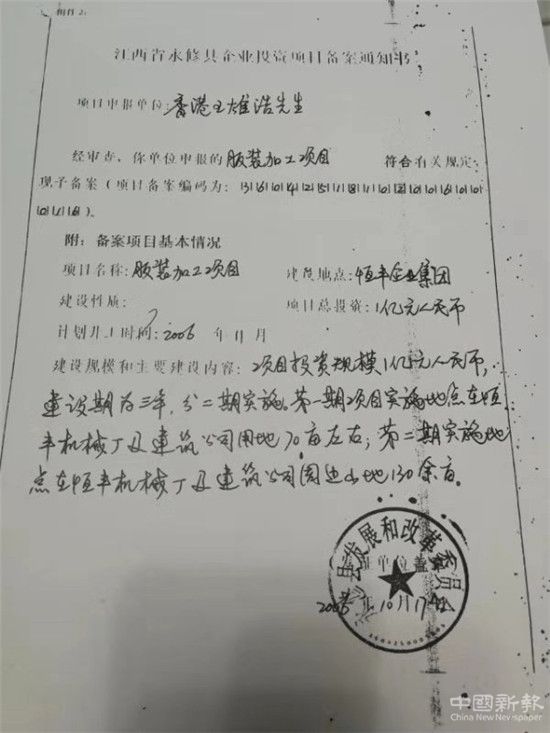 附件2:
江西省永修县企业投资项目备案通知书
项目申报单位:香港王雄浩先生
经审查,你单位申报的服装加工项目 符合有关规定,
现予备案(项目备案编码为:
)。
附:备案项目基本情况
项目名称:服装加工项目 建设地点:恒丰企业集团
建设性质: 项目总投资:1亿元人民币
计划开工时间:2006年11月
建设规模和主要建设内容:项目投资规模1亿元人民币,
建设期为三年,分二期实施。第一期项目实施地点在恒
丰机械厂及建筑公司用地70亩左右;第二期实施地
点在恒丰机械厂及建筑公司周边山地130余亩。
县发展和改革委员会
单位盖
2006 10月17
中國新報
China New Newspaper